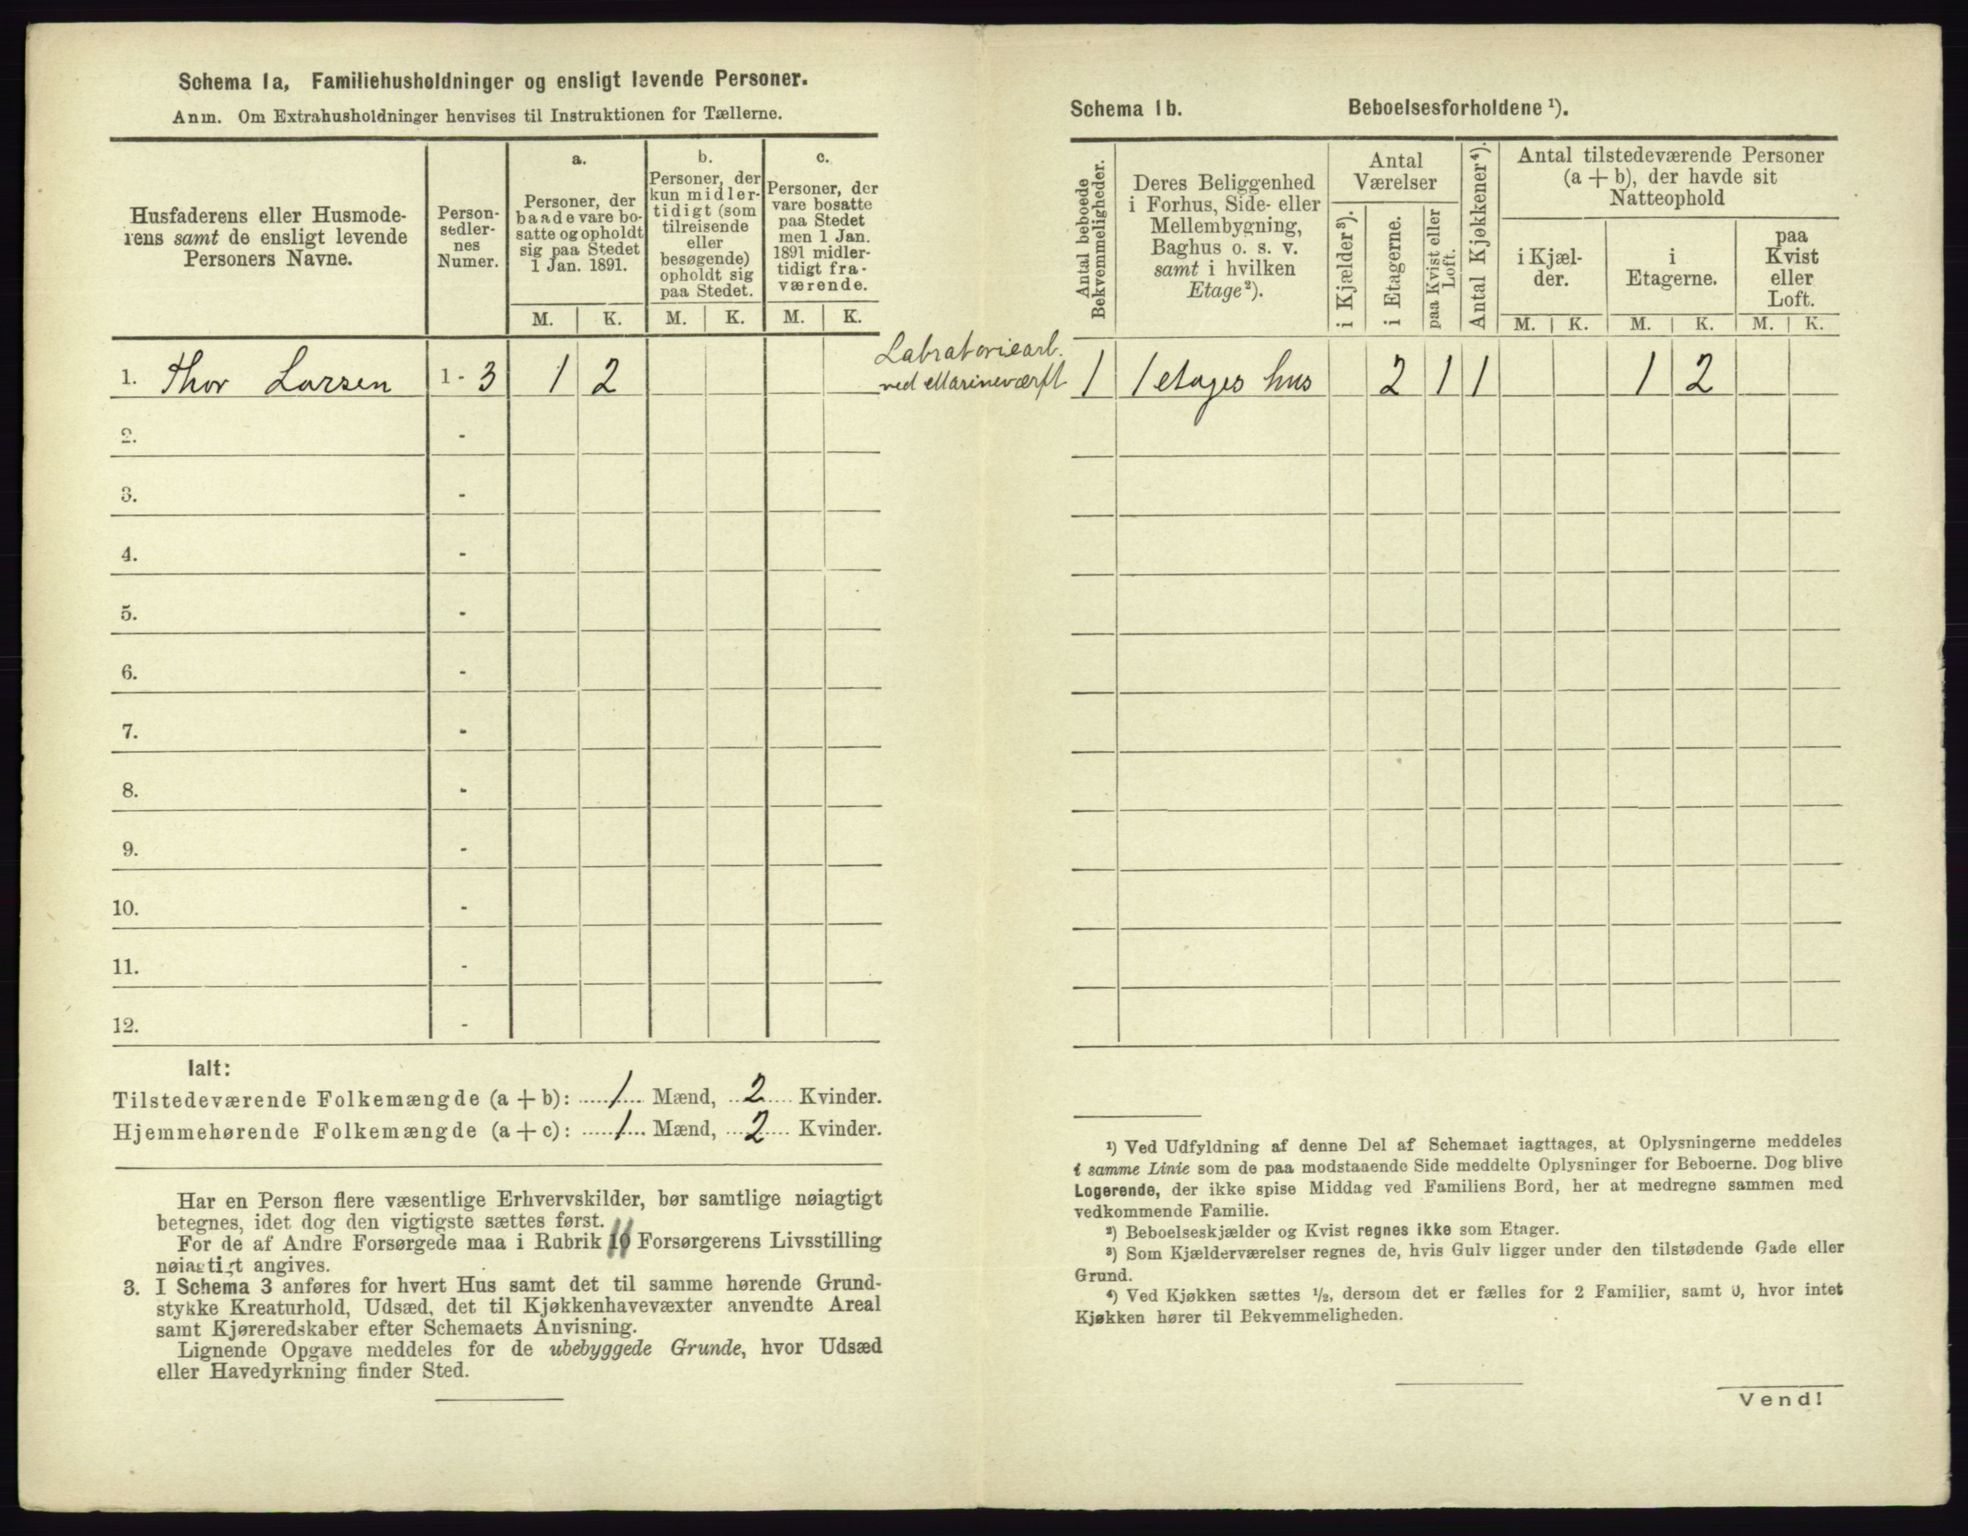 Schema 1a, Familiehusholdninger og ensligt levende Personer.
Anm. Om Extrahusholdninger henvises til Instruktionen for Tællerne.
Husfaderens eller Husmode-
rens samt de ensligt levende
Personers Navne.
Person-
sedler-
nes
Numer.
a.
Personer, der
baade vare bo-
satte og opholdt
sig paa Stedet
1 Jan. 1891.
b.
Personer, der
kun midler-
tidigt (som
tilreisende
eller
besøgende)
opholdt sig
paa Stedet.
c.
Personer, der
vare bosatte
paa Stedet
men 1 Jan.
1891 midler-
tidigt fra-
værende.
M. K. M. K. M. K.
1. Thor Larsen 1 - 3 1 2
Labratoriearb.
ved Marineværft
2. -
3. -
4. -
5. -
6. -
7. -
8. -
9. -
10. -
11. -
12. -
Ialt:
Tilstedeværende Folkemængde (a + b): 1 Mænd, 2 Kvinder.
Hjemmehørende Folkemængde (a + c): 1 Mænd, 2 Kvinder.
Har en Person flere væsentlige Erhvervskilder, bør samtlige nøiagtigt
betegnes, idet dog den vigtigste sættes først.
For de af Andre Forsørgede maa i Rubrik 11 Forsørgerens Livsstilling
nøiagtigt angives.
3. I Schema 3 anføres for hvert Hus samt det til samme hørende Grund-
stykke Kreaturhold, Udsæd, det til Kjøkkenhavevæxter anvendte Areal
samt Kjøreredskaber efter Schemaets Anvisning.
Lignende Opgave meddeles for de ubebyggede Grunde, hvor Udsæd
eller Havedyrkning finder Sted.
Schema 1b. Beboelsesforholdene ¹).
Antal beboede
Bekvemmeligheder.
Deres Beliggenhed
i Forhus, Side- eller
Mellembygning,
Baghus o. s. v.
samt i hvilken
Etage²).
Antal
Værelser
i Kjælder³).
i Etagerne.
paa Kvist eller
Loft.
Antal Kjøkkener⁴).
Antal tilstedeværende Personer
(a + b), der havde sit
Natteophold
i Kjæl-
der.
i
Etagerne.
paa
Kvist
eller
Loft.
M. K. M. K. M. K.
1 1 etages hus 2 1 1 1 2
¹) Ved Udfyldning af denne Del af Schemaet iagttages, at Oplysningerne meddeles
i samme Linie som de paa modstaaende Side meddelte Oplysninger for Beboerne. Dog blive
Logerende, der ikke spise Middag ved Familiens Bord, her at medregne sammen med
vedkommende Familie.
²) Beboelseskjælder og Kvist regnes ikke som Etager.
³) Som Kjælderværelser regnes de, hvis Gulv ligger under den tilstødende Gade eller
Grund.
⁴) Ved Kjøkken sættes ½, dersom det er fælles for 2 Familier, samt 0, hvor intet
Kjøkken hører til Bekvemmeligheden.
Vend!